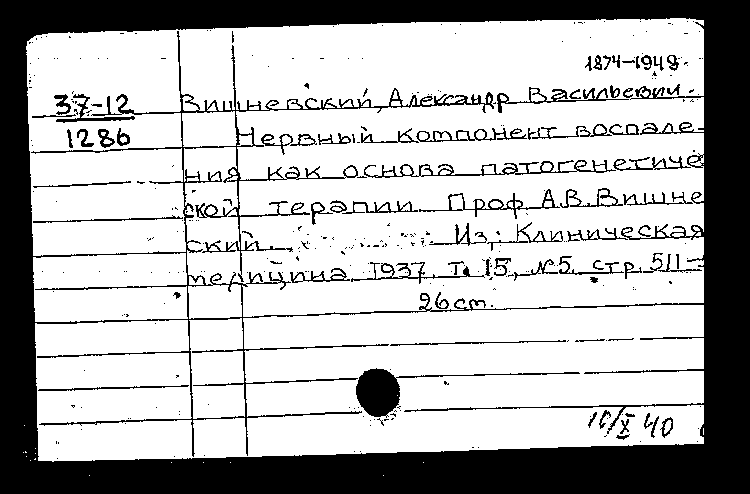 1874-1948.
37-12 Вишневский, Александр Васильевич.
1286 Нервный компонент воспале-
ния как основа патогенетиче
ской терапии. Проф. А.В. Вишне
ский. Из: Клиническая
медицина. 1937. Т. 15, №5. стр. 511-
26 cm.
10/X 40